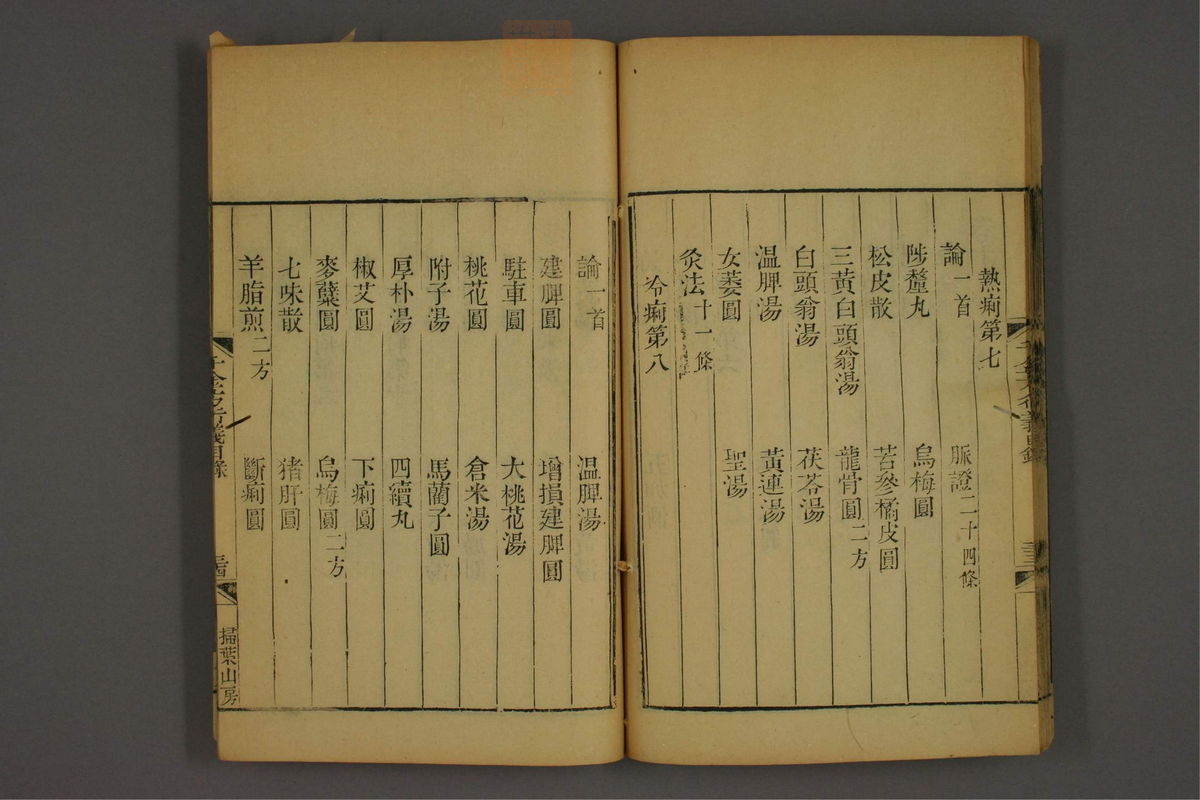 熱痢第七
論一首 脈證二十四條
陟釐丸 烏梅圓
松皮散 苦參橘皮圓
三黃白頭翁湯 龍骨圓二方
白頭翁湯 茯苓湯
溫脾湯 黃連湯
女萎圓 聖湯
灸法十一條
冷痢第八
論一首 溫脾湯
建脾圓 增損建脾圓
駐車圓 大桃花湯
桃花圓 倉米湯
附子湯 馬藺子圓
厚朴湯 四續丸
椒艾圓 下痢圓
麥蘗圓 烏梅圓二方
七味散 猪肝圓
羊脂煎二方 斷痢圓
千金方衍義目錄 三十四
掃葉山房